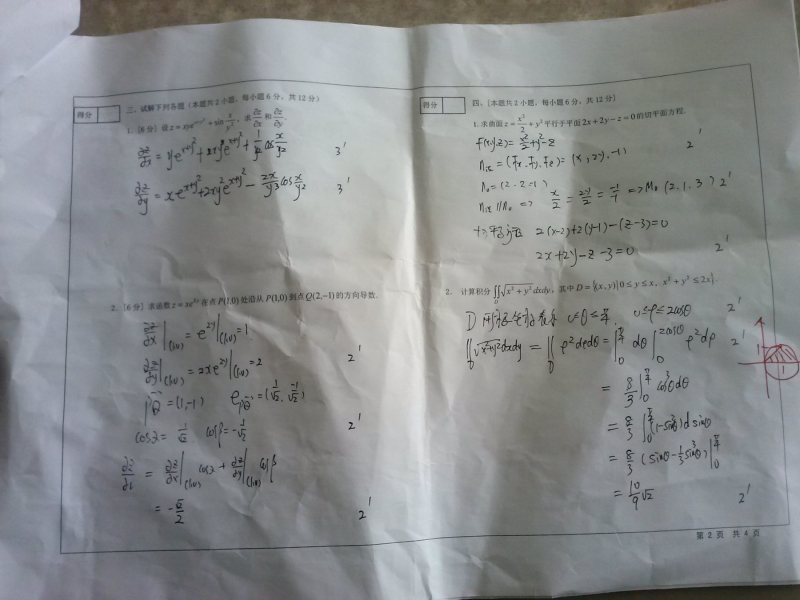 得分
三、试解下列各题（本题共2小题，每小题6分，共12分）
1.[6分] 设 z = xye^{x+y²} + sin x/y²，求 ∂z/∂x 和 ∂z/∂y.
3'
3'
2.[6分] 求函数 z = xe^{2y} 在点 P(1,0) 处沿从 P(1,0) 到点 Q(2,-1) 的方向导数.
∂z/∂x |(1,0) = e^{2y} |(1,0) = 1
∂z/∂y |(1,0) = 2xe^{2y} |(1,0) = 2 2'
PQ = (1,-1) e_PQ = (1/√2, -1/√2)
cosα = 1/√2 cosβ = -1/√2 2'
∂z/∂l = ∂z/∂x |(1,0) cosα + ∂z/∂y |(1,0) cosβ
= -√2/2 2'
得分
四、[本题共2小题，每小题6分，共12分]
1. 求曲面 z = x²/2 + y² 平行于平面 2x+2y-z=0 的切平面方程.
F(x,y,z) = x²/2 + y² - z 2'
= (Fx, Fy, Fz) = (x, 2y, -1)
n₀ = (2, 2, -1)
// n₀ => x/2 = 2y/2 = -1/-1 => M₀(2,1,3) 2'
2(x-2)+2(y-1)-(z-3)=0
2x+2y-z-3=0 2'
2. 计算积分 ∬_D √(x²+y²) dxdy，其中 D = {(x,y)|0≤y≤x, x²+y²≤2x}.
D 0≤θ≤π/4, 0≤ρ≤2cosθ 2'
∬_D √(x²+y²) dxdy = ∬_D ρ²dρdθ = ∫₀^{π/4} dθ ∫₀^{2cosθ} ρ²dρ 2'
= 8/3 ∫₀^{π/4} cos³θdθ
= 8/3 ∫₀^{π/4} (1-sin²θ) d sinθ
= 8/3 (sinθ - 1/3 sin³θ) |₀^{π/4}
= 10/9 √2 2'
1
第 2 页 共 4 页